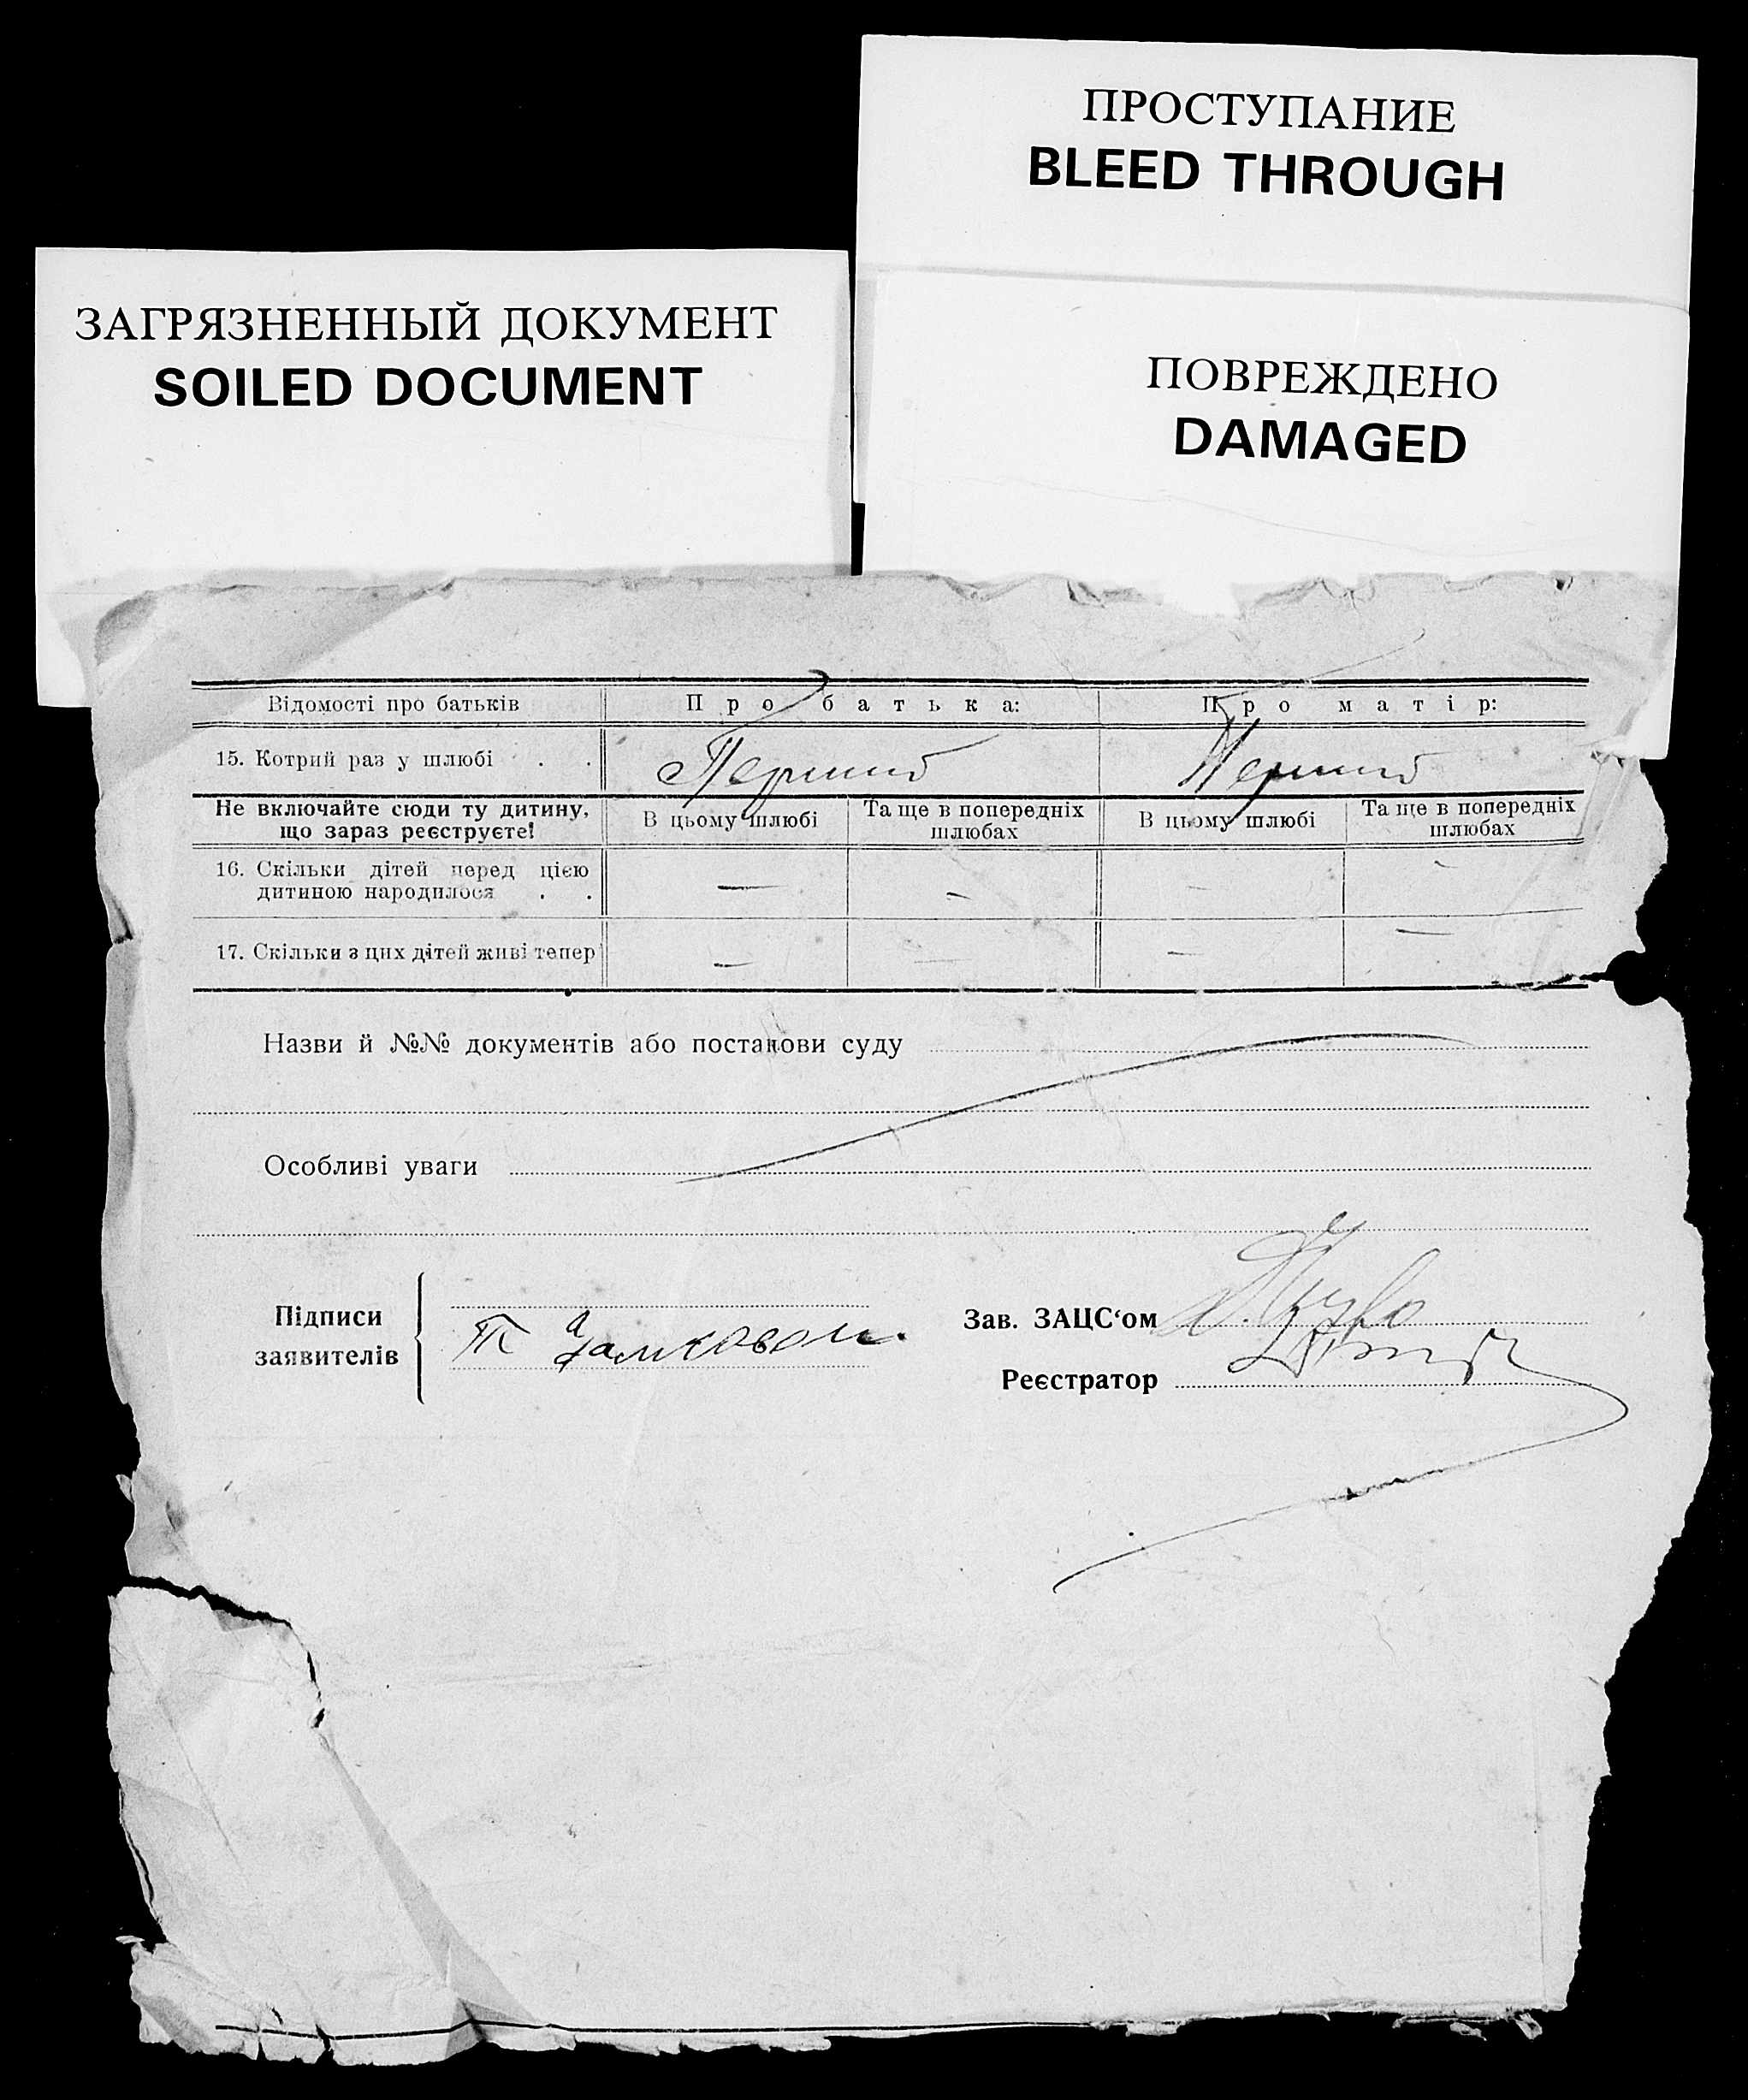 ПРОСТУПАНИЕ
BLEED THROUGH
ЗАГРЯЗНЕННЫЙ ДОКУМЕНТ
SOILED DOCUMENT
ПОВРЕЖДЕНО
DAMAGED
Відомості про батьків Про батька: Про матір:
15. Котрий раз у шлюбі . . Первий Первий
Не включайте сюди ту дитину, що зараз реєструєте! В цьому шлюбі Та ще в попередніх шлюбах В цьому шлюбі Та ще в попередніх шлюбах
16. Скільки дітей перед цією
дитиною народилося . . — — — —
17. Скільки з цих дітей живі тепер — — — —
Назви й №№ документів або постанови суду
Особливі уваги
Підписи
заявителів
Зав. ЗАЦС‘ом
Реєстратор